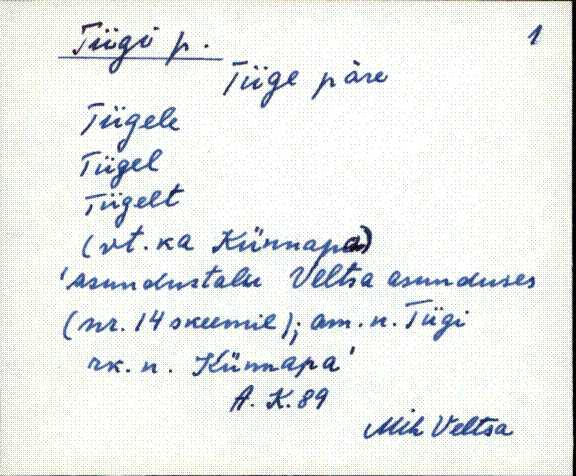 Tiigi p. 1
Tiige päre
Tiigele
Tiigel
Tiigelt
(vt. ka Künnapa)
'asundustalu Veltsa asunduses
(nr. 14 skeemil); am. n. Tiigi
rk. n. Künnapa'
A. K. 89
Mih Veltsa